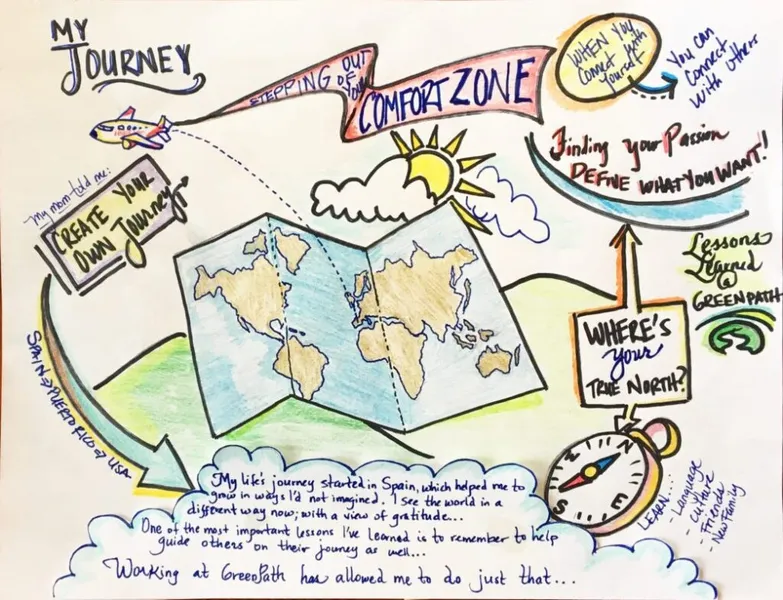 MY
JOURNEY
STEPPING OUT
OF YOUR
COMFORT ZONE
WHEN YOU
Connect with
Yourself
You can
Connect
With others
Finding your Passion
DEFINE WHAT YOU WANT!
My mom told me:
CREATE YOUR
OWN Journey
Lessons
Learned
@
GREENPATH
WHERE'S
your
TRUE NORTH?
SPAIN → PUERTO RICO → USA
N
E
S
LEARN...
- Language
- Culture
- Friends
- New Family
My life's journey started in Spain, which helped me to
grow in ways I'd not imagined. I see the world in a
different way now; with a view of gratitude...
One of the most important lessons I've learned is to remember to help
guide others on their journey as well...
Working at GreenPath has allowed me to do just that...